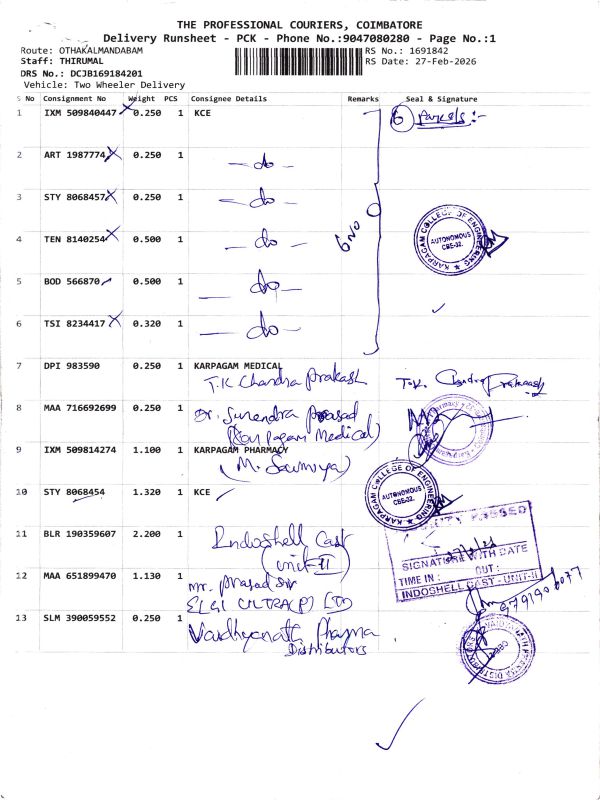 THE PROFESSIONAL COURIERS, COIMBATORE
Delivery Runsheet - PCK - Phone No.:9047080280 - Page No.:1
Route: OTHAKALMANDABAM
RS No.: 1691842
Staff: THIRUMAL
RS Date: 27-Feb-2026
DRS No.: DCJB169184201
Vehicle: Two Wheeler Delivery
S No Consignment No Weight PCS Consignee Details Remarks Seal & Signature
1 IXM 509840447 0.250 1 KCE
6 Parcels:-
2 ART 1987774 0.250 1 - do -
3 STY 8068457 0.250 1 - do -
6 NO
4 TEN 8140254 0.500 1 - do -
KARPAGAM COLLEGE OF ENGINEERING
AUTONOMOUS
CBE-32.
5 BOD 566870 0.500 1 - do -
6 TSI 8234417 0.320 1 - do -
7 DPI 983590 0.250 1 KARPAGAM MEDICAL
T.K Chandra Prakash
T.K. Chandra Prakaash
8 MAA 716692699 0.250 1 Dr. Surendra Prasad
(Karpagam Medical)
9 IXM 509814274 1.100 1 KARPAGAM PHARMACY
(M. Saumiya)
10 STY 8068454 1.320 1 KCE
KARPAGAM COLLEGE OF ENGINEERING
AUTONOMOUS
CBE-32.
11 BLR 190359607 2.200 1 Indoshell Cast
(unit-II)
PASSED
SIGNATURE WITH DATE
TIME IN : OUT :
INDOSHELL CAST - UNIT-II
12 MAA 651899470 1.130 1 mr. Prasad sir
ELGI ULTRA(P) LTD
13 SLM 390059552 0.250 1 Vaidhyanath Pharma
Distributors